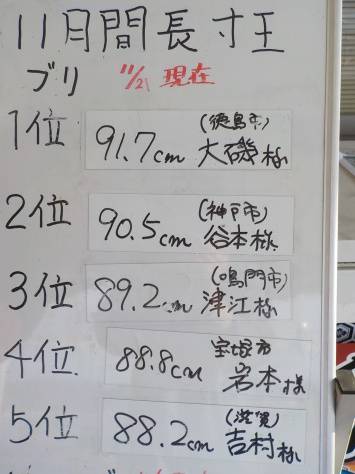 11月間長寸王
ブリ 11/21 現在
1位 91.7cm (徳島市) 大磯様
2位 90.5cm (神戸市) 谷本様
3位 89.2cm (鳴門市) 津江様
4位 88.8cm 宝塚市 岩本様
5位 88.2cm (滋賀) 吉村様